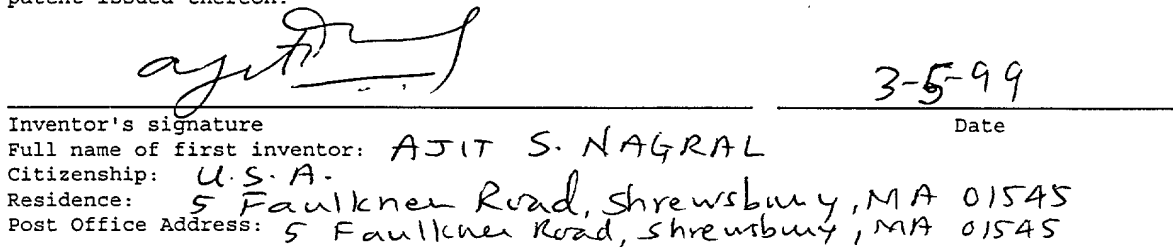 patent issued thereon.
Ajit 3-5-99
Inventor's signature Date
Full name of first inventor: AJIT S. NAGRAL
Citizenship: U.S.A.
Residence: 5 Faulkner Road, Shrewsbury, MA 01545
Post Office Address: 5 Faulkner Road, Shrewsbury, MA 01545